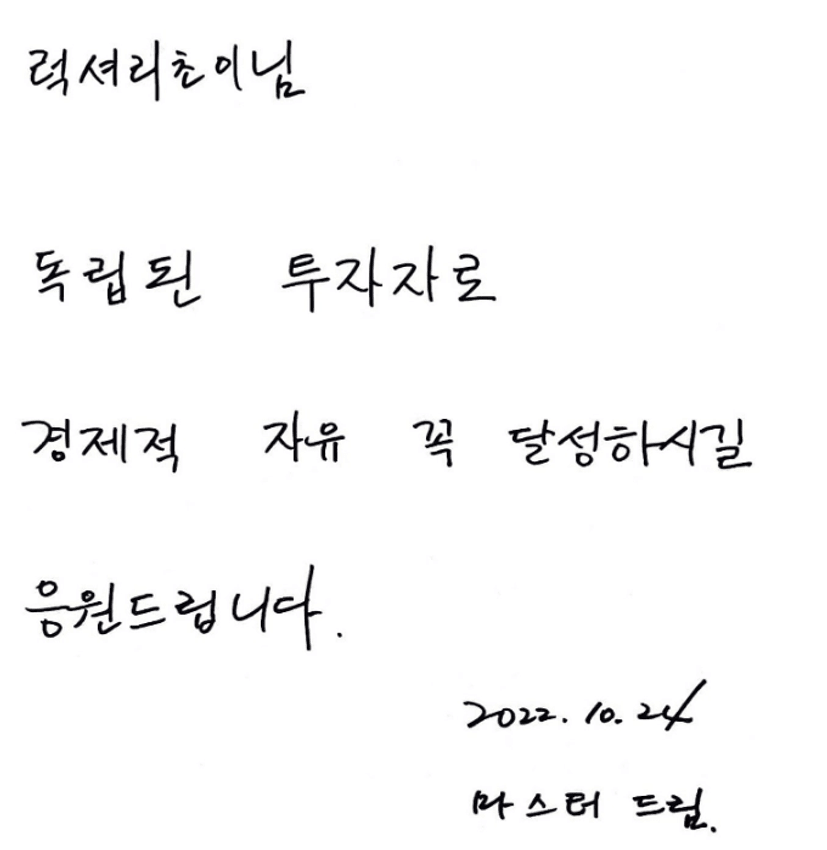 럭셔리초이님
독립된 투자자로
경제적 자유 꼭 달성하시길
응원드립니다.
2022. 10. 24
마스터 드림.